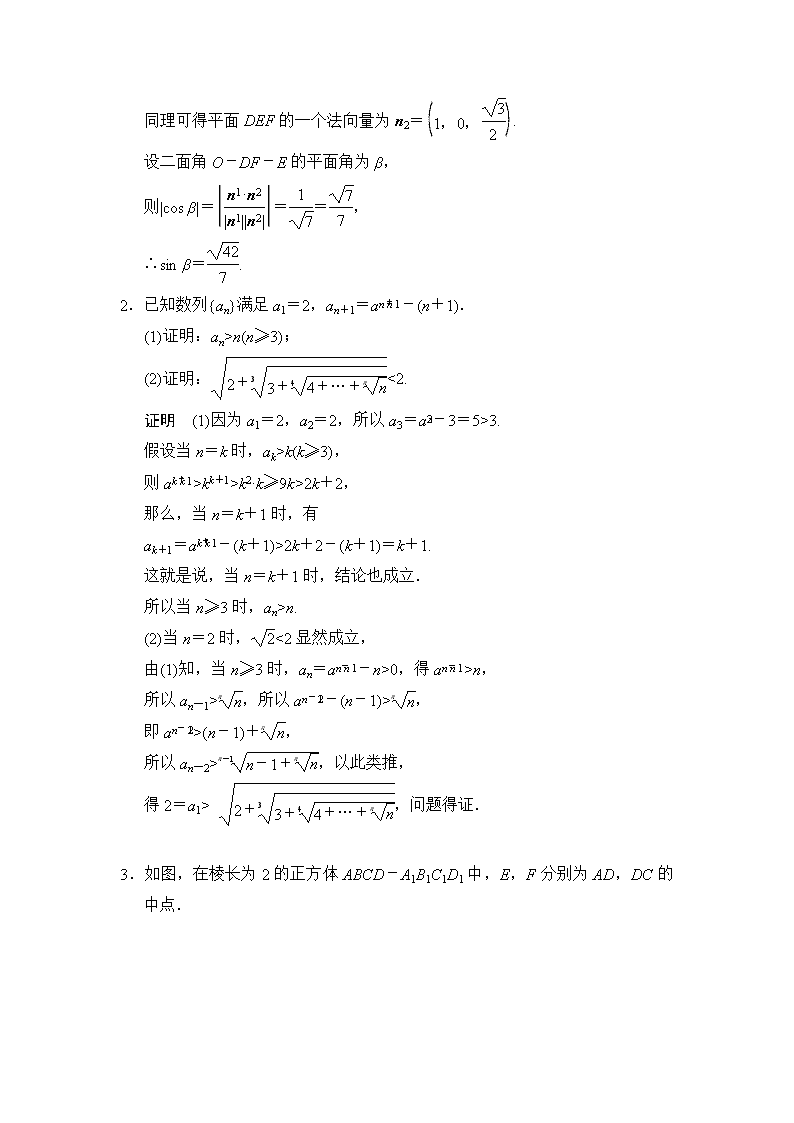 同理可得平面 DEF 的一个法向量为 n₂＝(1，0，√3/2).
设二面角 O－DF－E 的平面角为 β，
则|cos β|＝|n1·n2/|n1||n2||＝1/√7＝√7/7，
∴sin β＝√42/7.
2．已知数列{aₙ}满足 a₁＝2，aₙ₊₁＝aₙⁿ⁺¹－(n＋1)．
(1)证明：aₙ>n(n≥3)；
(2)证明：√(2＋∛(3＋∜(4＋…＋ⁿ√n)))<2.
证明　(1)因为 a₁＝2，a₂＝2，所以 a₃＝a₂³－3＝5>3.
假设当 n＝k 时，aₖ>k(k≥3)，
则 aₖᵏ⁺¹>kᵏ⁺¹>k²·k≥9k>2k＋2，
那么，当 n＝k＋1 时，有
aₖ₊₁＝aₖᵏ⁺¹－(k＋1)>2k＋2－(k＋1)＝k＋1.
这就是说，当 n＝k＋1 时，结论也成立．
所以当 n≥3 时，aₙ>n.
(2)当 n＝2 时，√2<2 显然成立，
由(1)知，当 n≥3 时，aₙ＝aₙ₋₁ⁿ－n>0，得 aₙ₋₁ⁿ>n，
所以 aₙ₋₁>ⁿ√n，所以 aₙ₋₂ⁿ⁻¹－(n－1)>ⁿ√n，
即 aₙ₋₂ⁿ⁻¹>(n－1)＋ⁿ√n，
所以 aₙ₋₂>ⁿ⁻¹√(n－1＋ⁿ√n)，以此类推，
得 2＝a₁>√(2＋∛(3＋∜(4＋…＋ⁿ√n)))，问题得证．
3．如图，在棱长为 2 的正方体 ABCD－A₁B₁C₁D₁ 中，E，F 分别为 AD，DC 的
中点．